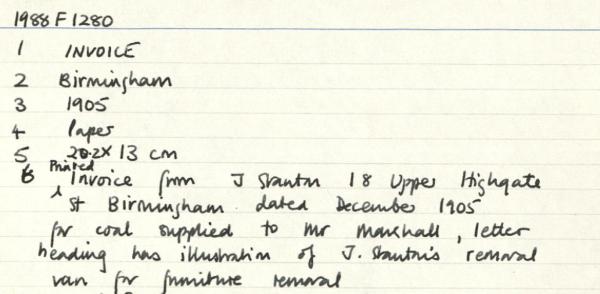 1988 F 1280
1 INVOICE
2 Birmingham
3 1905
4 Paper
5 20.2 X 13 cm
6 Printed Invoice from J Stanton 18 Upper Highgate
St Birmingham dated December 1905
for coal supplied to Mr Marshall, letter
heading has illustration of J. Stanton's removal
van for furniture removal